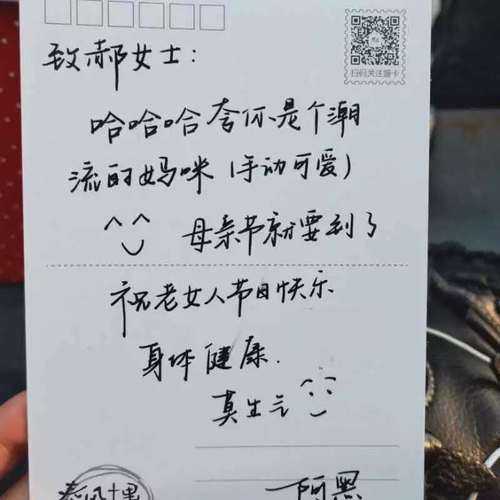 扫码关注留卡
致郝女士：
哈哈哈夸你是个潮
流的妈咪（手动可爱）
^^ 母亲节就要到了
祝老女人节日快乐
身体健康.
莫生气
阿黑